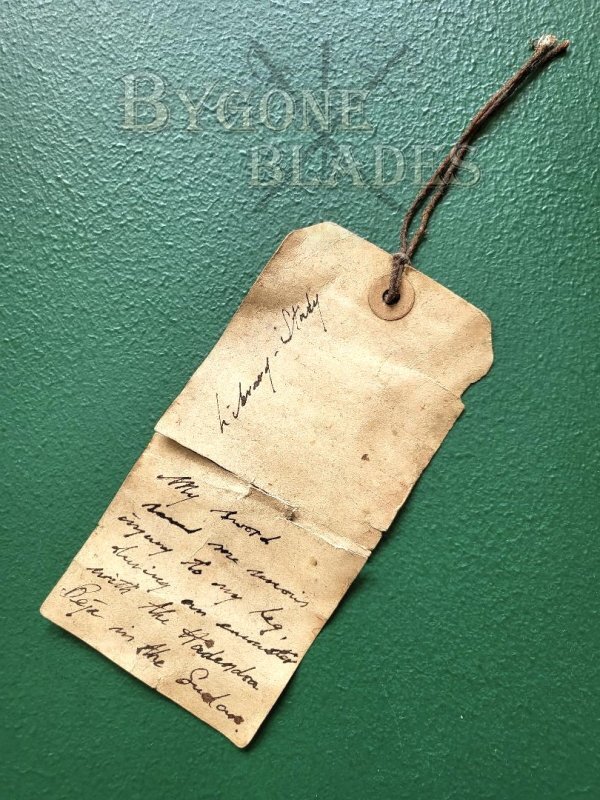 BYGONE
BLADES
Library - Study
My sword
saved me serious
injury to my leg
during an encounter
with the Hadendoa
Beja in the
Sudan.